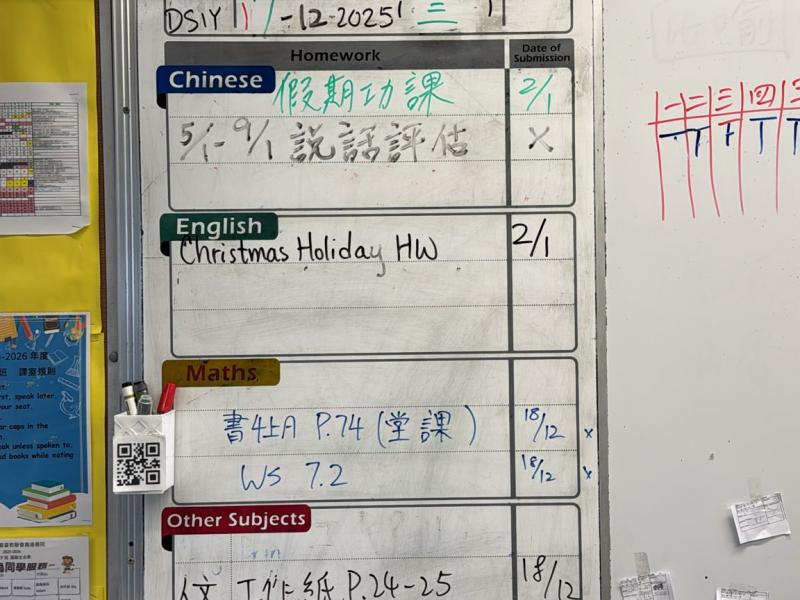 DSIY 17-12-2025 三
Homework Date of Submission
Chinese
假期功課 2/1
5/1-9/1 說話評估 X
English
Christmas Holiday HW 2/1
Maths
書4上A P.74 (堂課) 18/12 x
WS 7.2 18/12 x
Other Subjects
人文 工作紙 P.24-25 18/12
一 二 三 四
2026 年度
班 課室規則
speak later.
your seat.
caps in the
speak unless spoken to.
books while eating